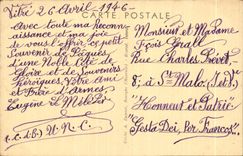 Vitré 26 Avril 1946 -
CARTE POSTALE
Avec toute ma Reconn-
aissance et ma joie
de vous l'offrir, ce petit
Souvenir de Pâques
d'une Noble Cité de
Gloire et de Souvenirs
Héroïques. Votre Ami
et Frère d'Armes
Eugène
U.N.C.
Monsieur et Madame
Fçois
Rue Charles
8, à St Malo, I.&V.
"Honneur et Patrie"
"Gesta Dei, per Francos"